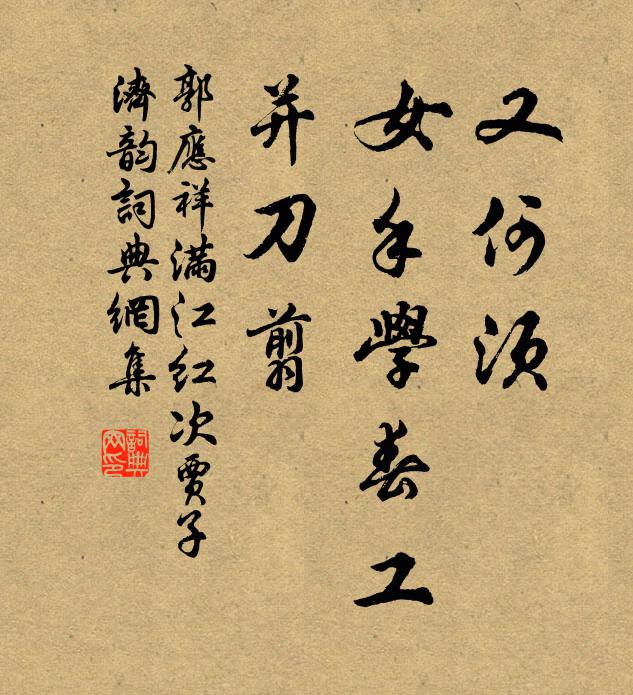 又何須
女手學春工
并刀翦
郭應祥滿江紅次賈子
濟韵詞典網集
詞典網印